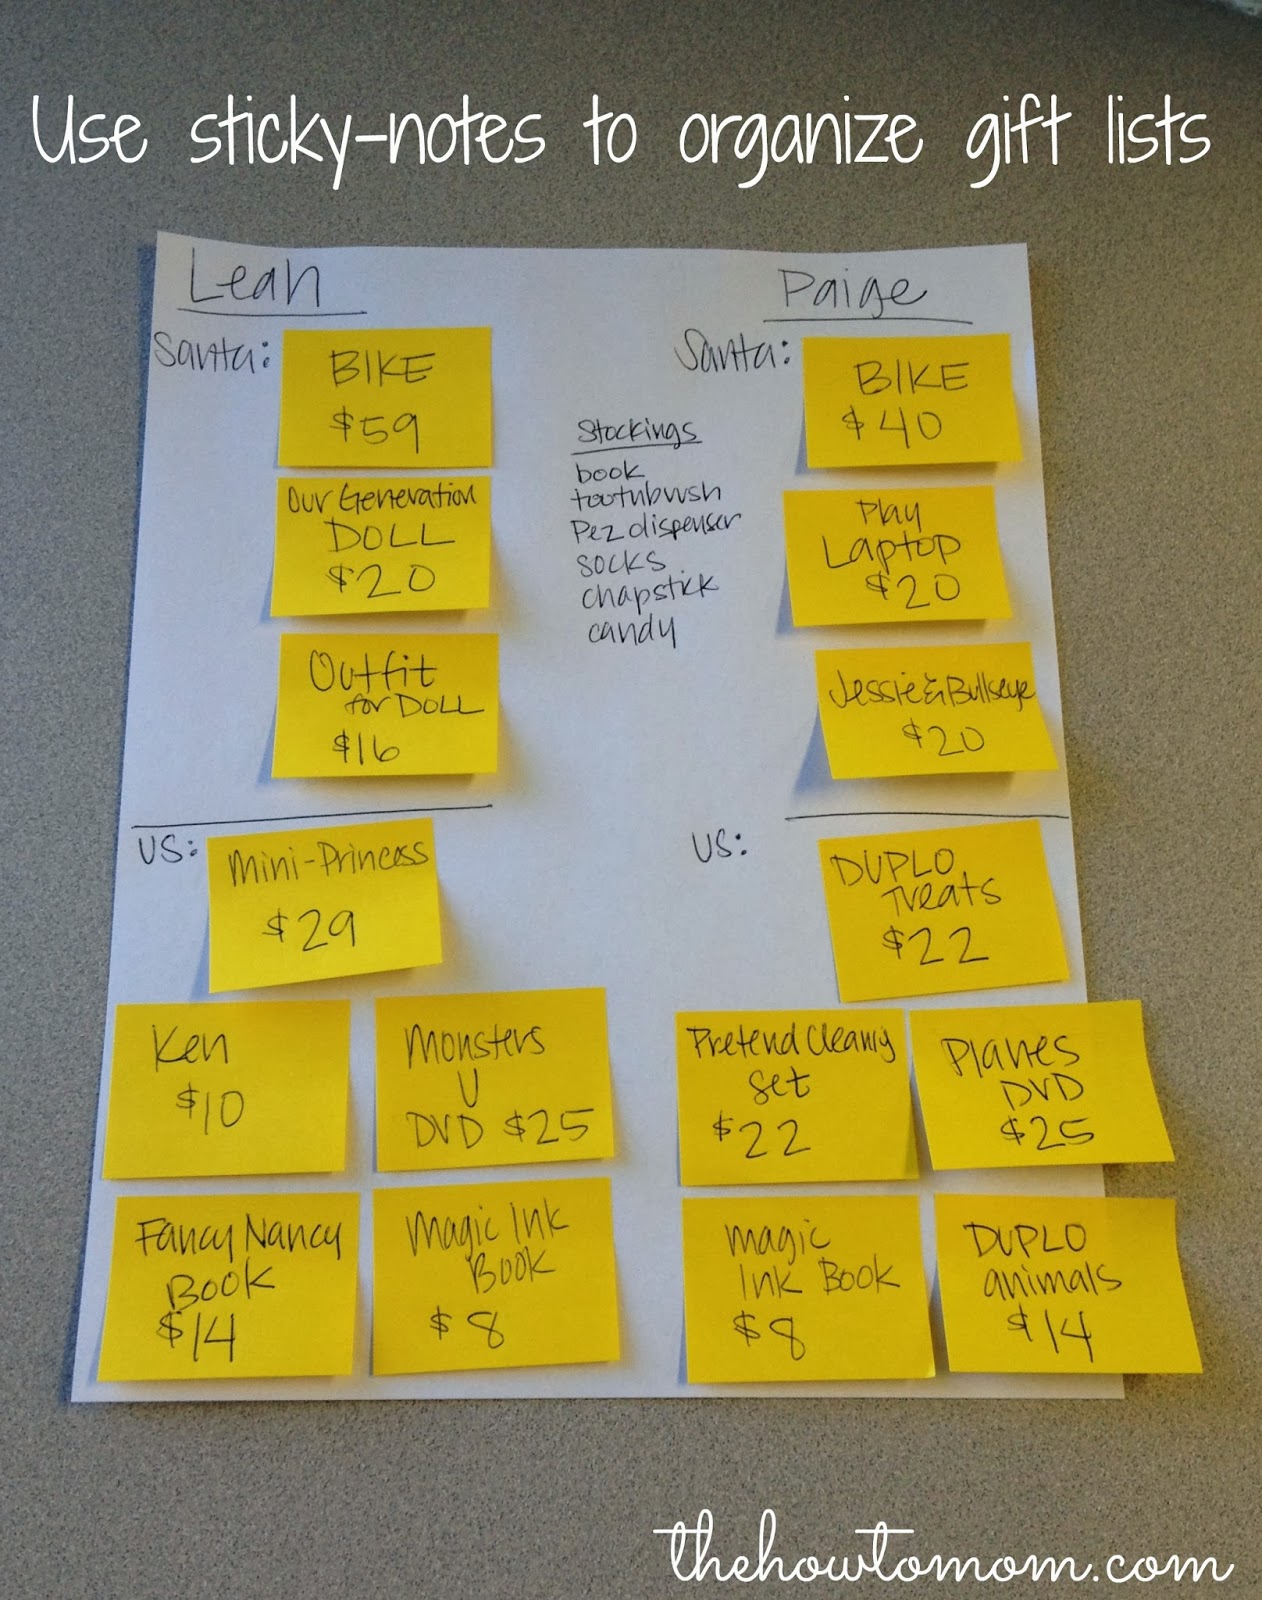 Use sticky-notes to organize gift lists
Leah
Santa:
BIKE
$59
Our Generation
DOLL
$20
Outfit
for DOLL
$16
US:
Mini-Princess
$29
Ken
$10
Monsters
U
DVD $25
Fancy Nancy
BOOK
$14
Magic Ink
BOOK
$8
Stockings
book
toothbrush
Pez dispenser
socks
chapstick
candy
Paige
Santa:
BIKE
$40
Play
Laptop
$20
Jessie & Bullseye
$20
US:
DUPLO
Treats
$22
Pretend Cleaning
Set
$22
Planes
DVD
$25
Magic
Ink Book
$8
DUPLO
animals
$14
thehowtomom.com